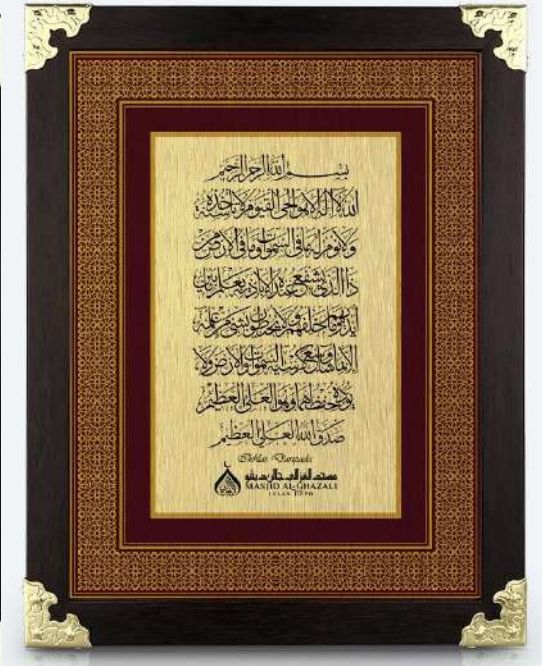 بسم الله الرحمن الرحيم
الله لا اله الا هو الحي القيوم لا تأخذه سنة
ولا نوم له ما في السموات وما في الارض من
ذا الذي يشفع عنده الا باذنه يعلم ما بين
ايديهم وما خلفهم ولا يحيطون بشيء من علمه
الا بما شاء وسع كرسيه السموات والارض ولا
يؤده حفظهما وهو العلي العظيم
صدق الله العلي العظيم
Ikhlas Daripada
مسجد الغزالي جالن ديفو
MASJID AL-GHAZALI
JALAN DEPO